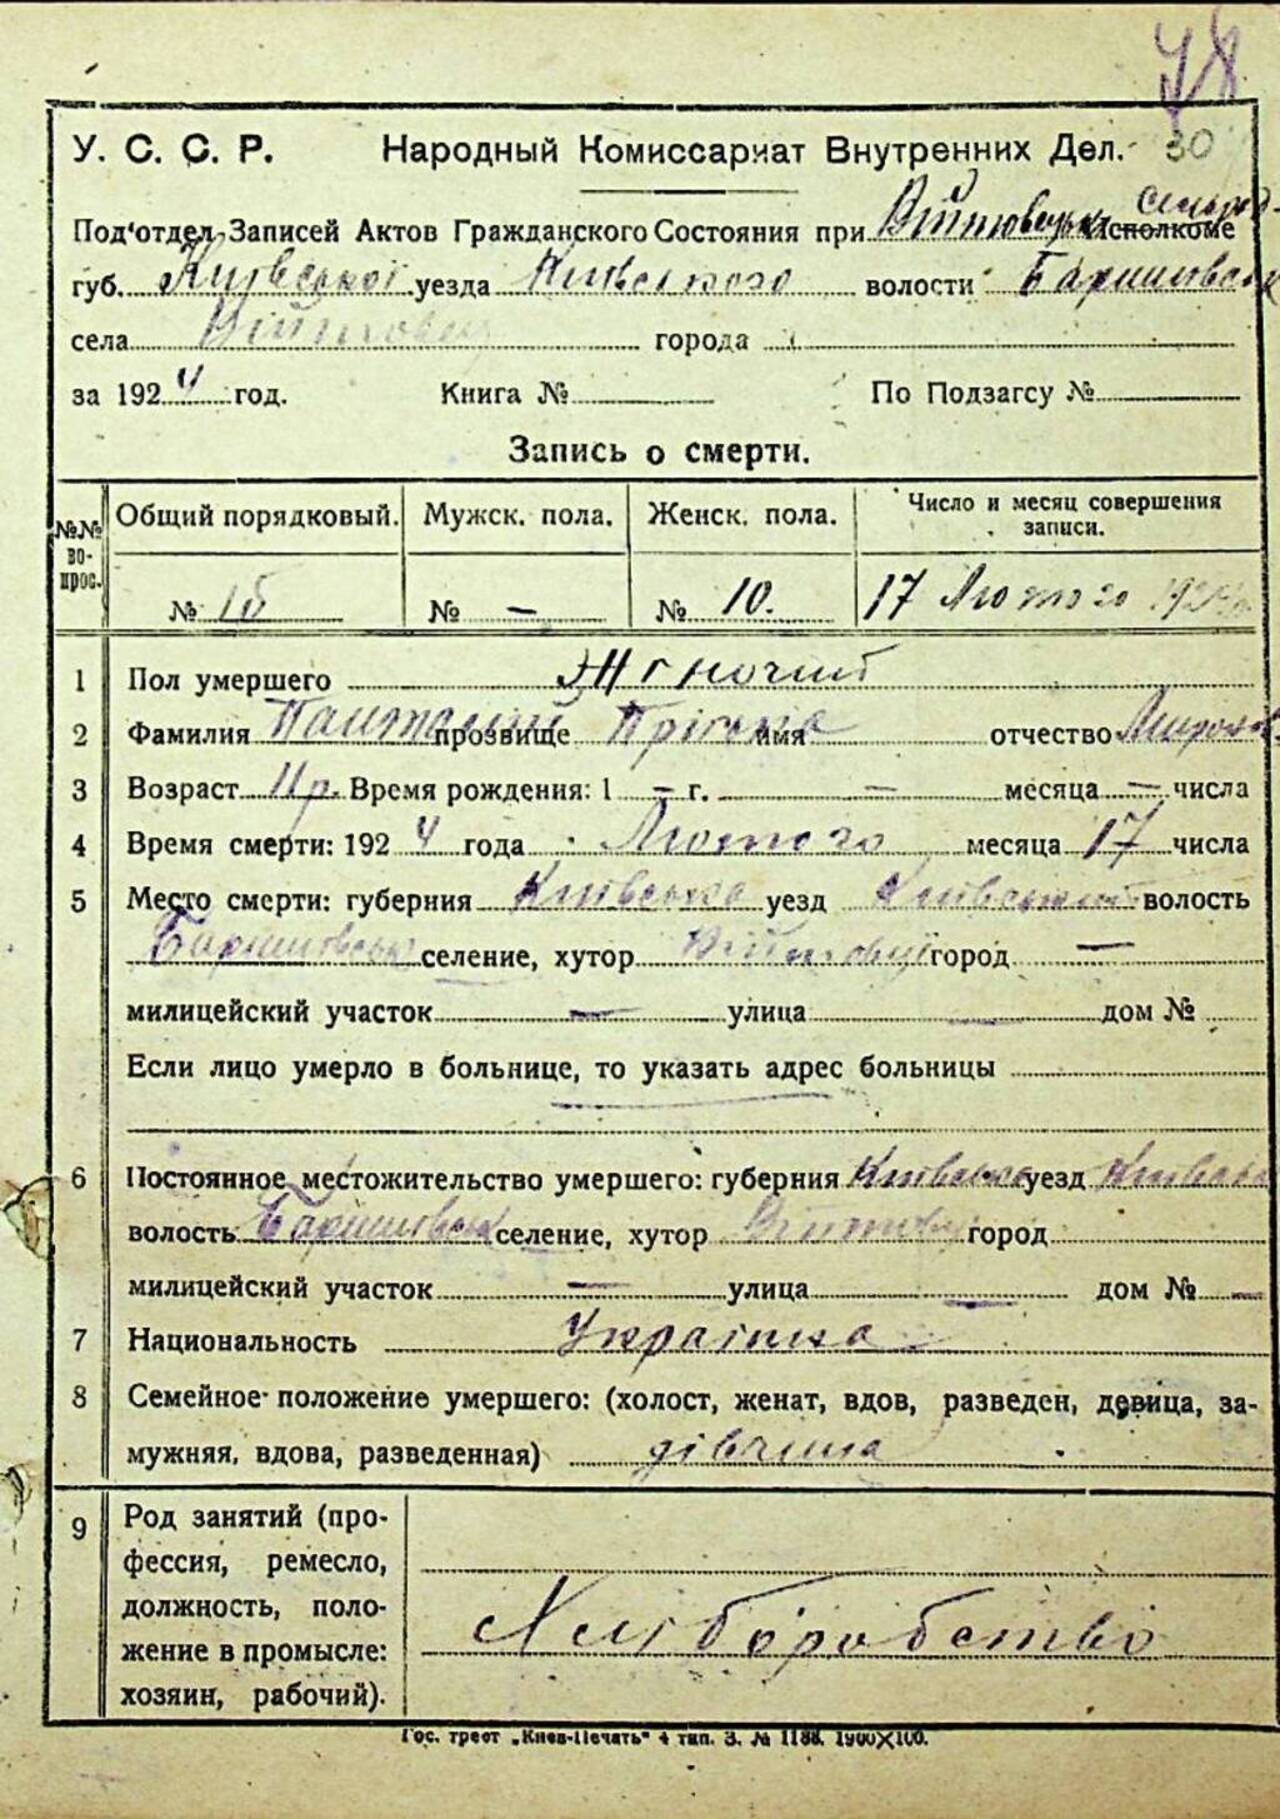 78
У. С. С. Р. Народный Комиссариат Внутренних Дел. 30
Под'отдел Записей Актов Гражданского Состояния при Війтовецьк. Исполкоме
губ. Київської уезда Київського волости Баришівськ
села Війтовец города
за 1924 год. Книга № По Подзагсу №
Запись о смерти.
№№ вопрос. Общий порядковый. Мужск. пола. Женск. пола. Число и месяц совершения записи.
№ № — № 10. 17 Лютого 1924
1 Пол умершего Жіночий
2 Фамилия прозвище Пріська имя отчество Миронов.
3 Возраст 11 р. Время рождения: 1 — г. — месяца — числа
4 Время смерти: 1924 года Лютого месяца 17 числа
5 Место смерти: губерния Київська уезд Київський волость
Баришівськ селение, хутор Війтовці город —
милицейский участок — улица — дом №
Если лицо умерло в больнице, то указать адрес больницы
—
6 Постоянное местожительство умершего: губерния Київська уезд Київськ
волость Баришівськ селение, хутор Війтовці город
милицейский участок — улица — дом № —
7 Национальность Українка
8 Семейное положение умершего: (холост, женат, вдов, разведен, девица, за-
мужняя, вдова, разведенная) дівчина
9 Род занятий (про-
фессия, ремесло,
должность, поло-
жение в промысле:
хозяин, рабочий).
Хліборобство
Гос. трест „Киев-Печать" 4 тип. З. № 1188. 1900X100.